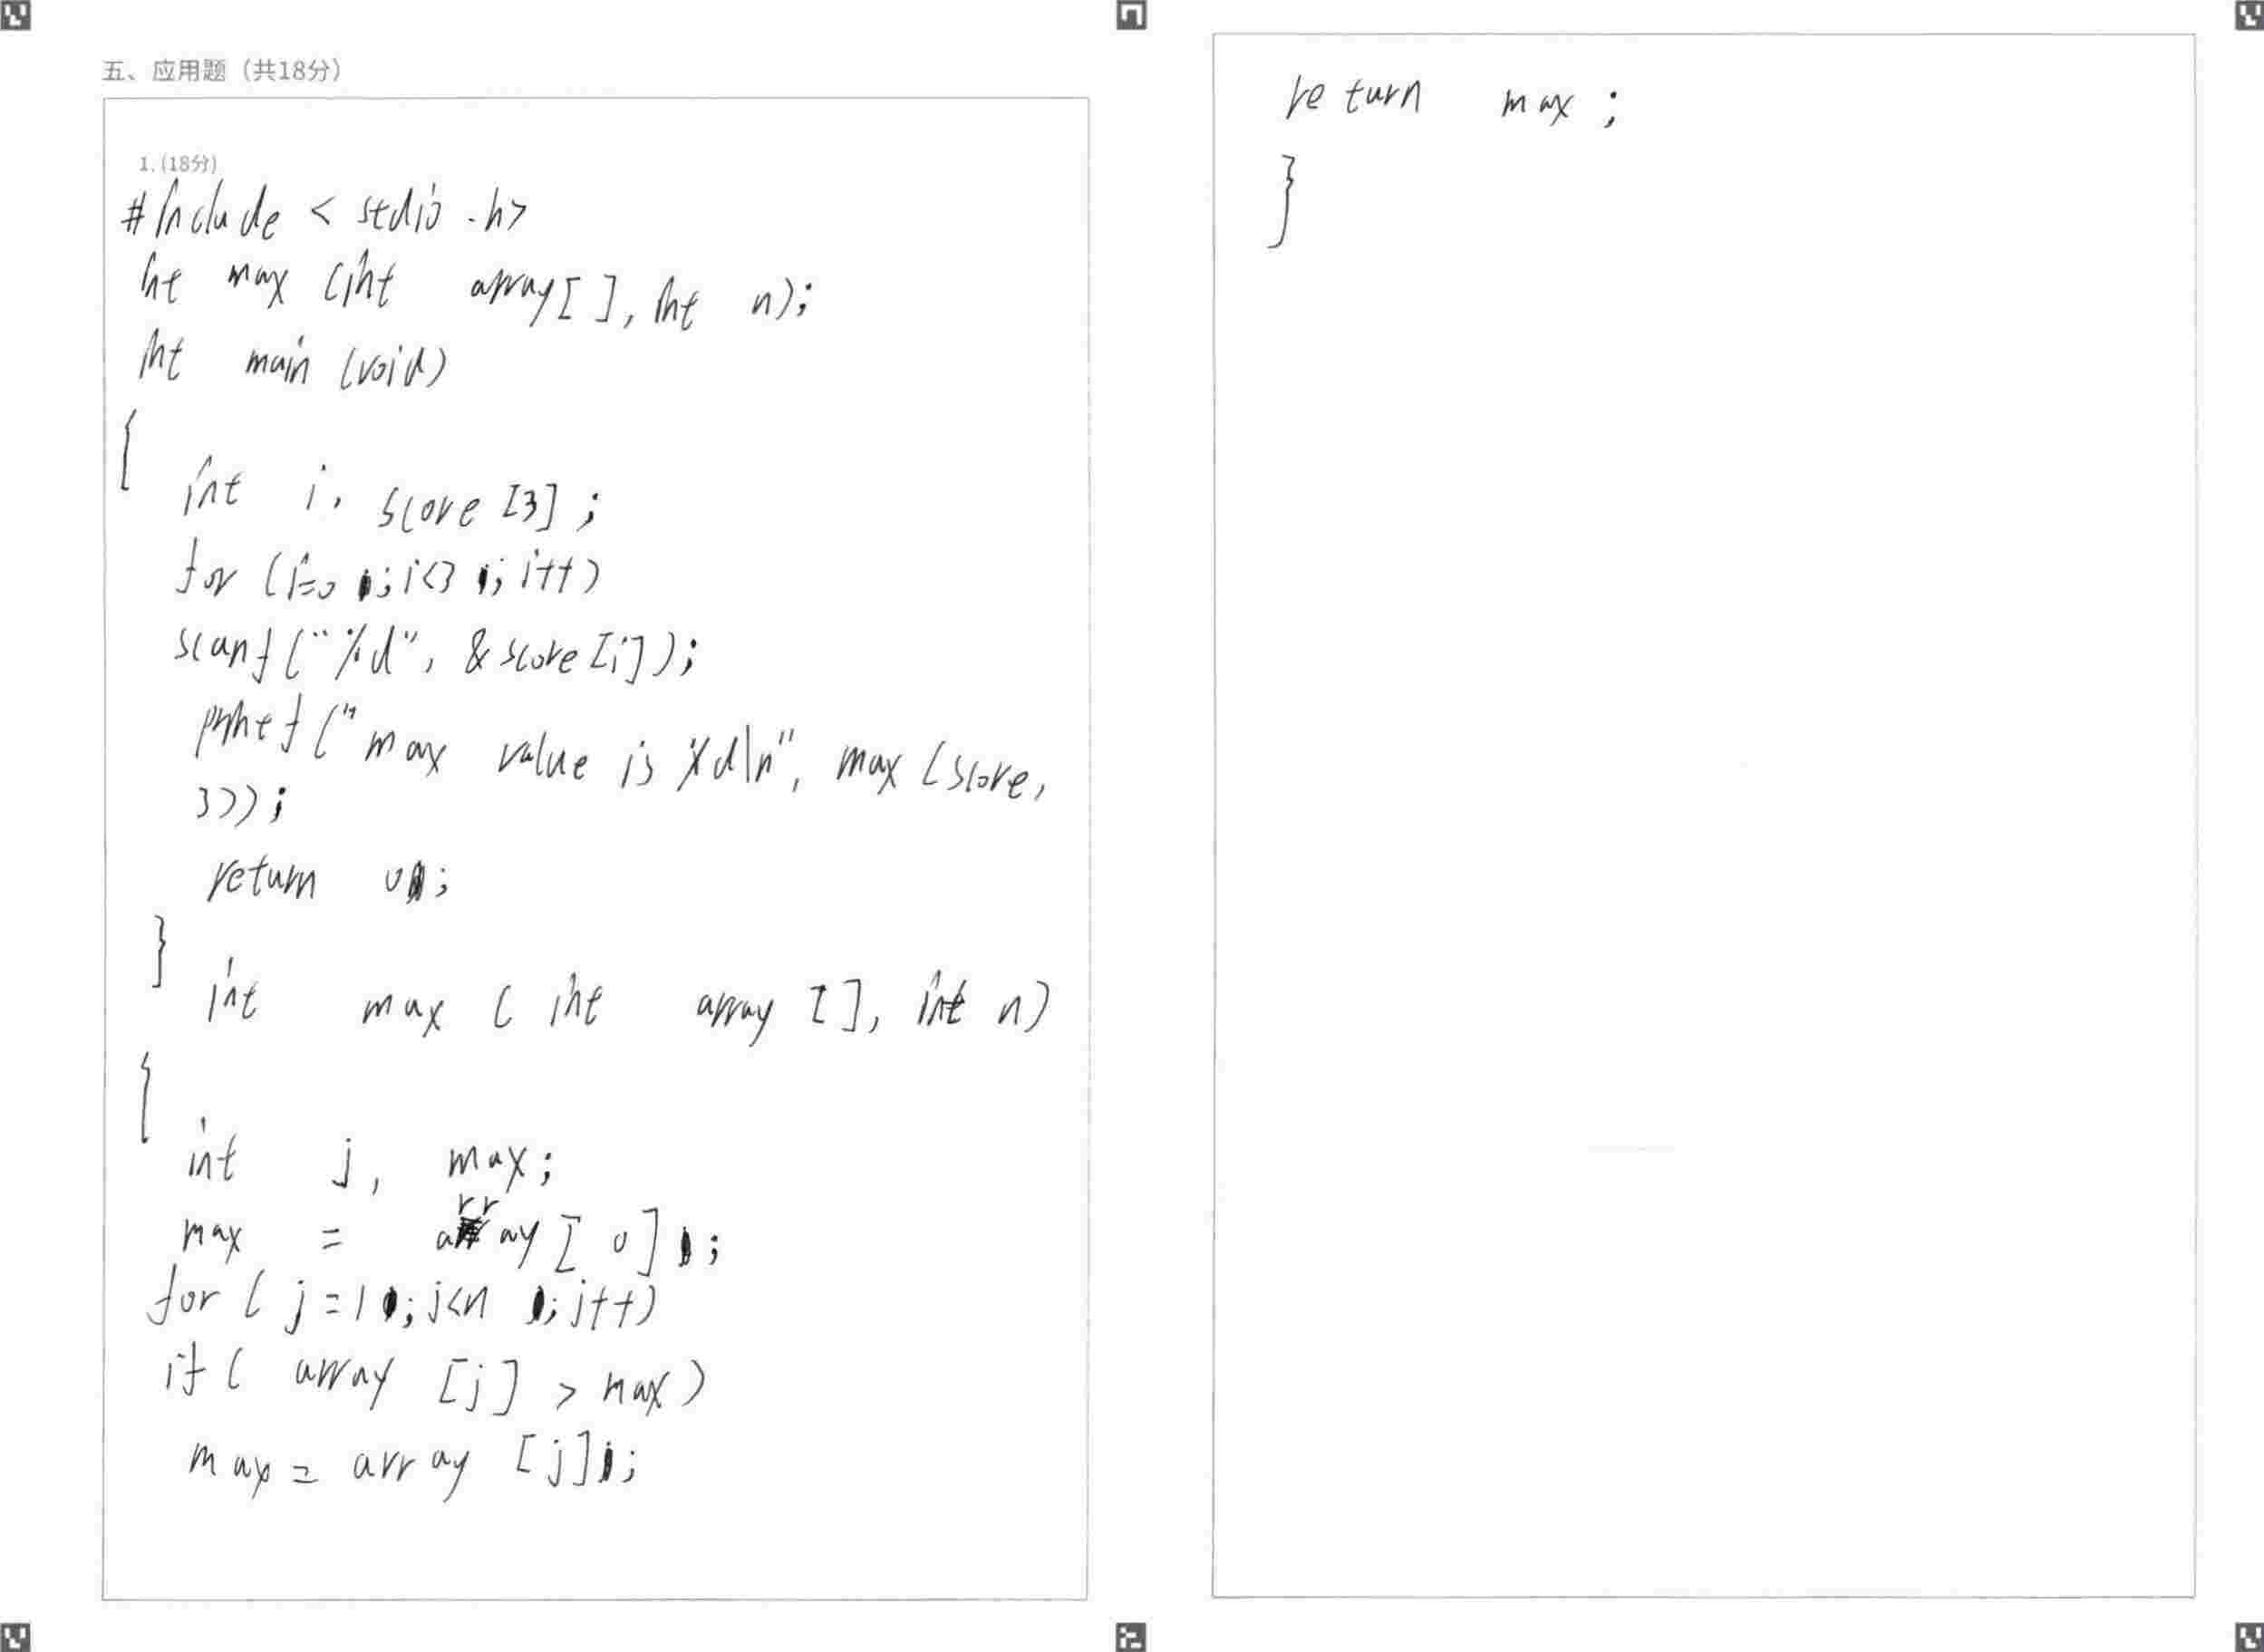 五、应用题（共18分）
1.(18分)
#include < stdio .h>
int max (int array[ ], int n);
int main (void)
{
int i, score [3] ;
for (i=0 ; i<3 ; i++)
scanf ("%d", & score [i] );
printf ("max value is %d\n", max (score,
3));
return 0;
}
int max ( int array [ ], int n)
{
int j, max;
max = array[ 0] ;
for ( j=1 ; j<n ; j++)
if ( array [j] > max)
max = array [j];
return max ;
}